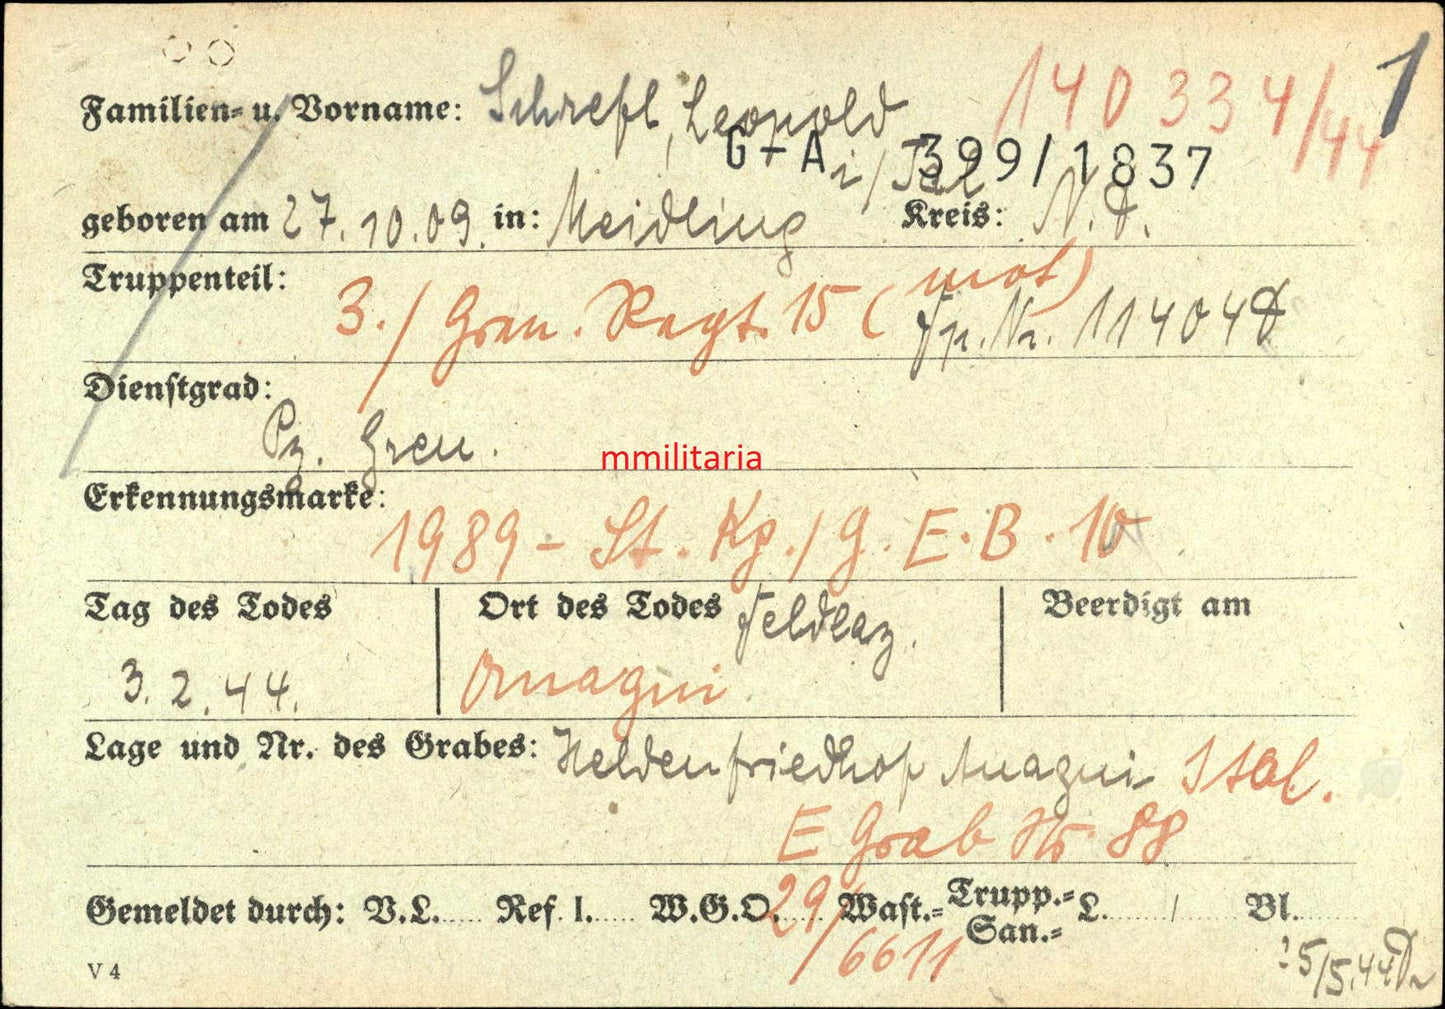 140334/44 1
Familien- u. Vorname: Schrefl, Leopold
G-A 399/1837
i/Tal
geboren am 27.10.09. in: Meidling Kreis: N.D.
Truppenteil: 3./Gren. Regt. 15 (mot)
Fp. Nr. 11404 D
Dienstgrad:
Pz. Gren.
mmilitaria
Erkennungsmarke:
1989 - St. Kp./G.E.B. 10
Tag des Todes Ort des Todes Feldlaz. Beerdigt am
3.2.44.
Lage und Nr. des Grabes: Heldenfriedhof Anagni Ital.
E Grab Nr. 88
Gemeldet durch: V.L. Ref I. W.G.O. Wast.- Trupp.- San.- L. / Bl.
29/6611
V 4
5/5.44